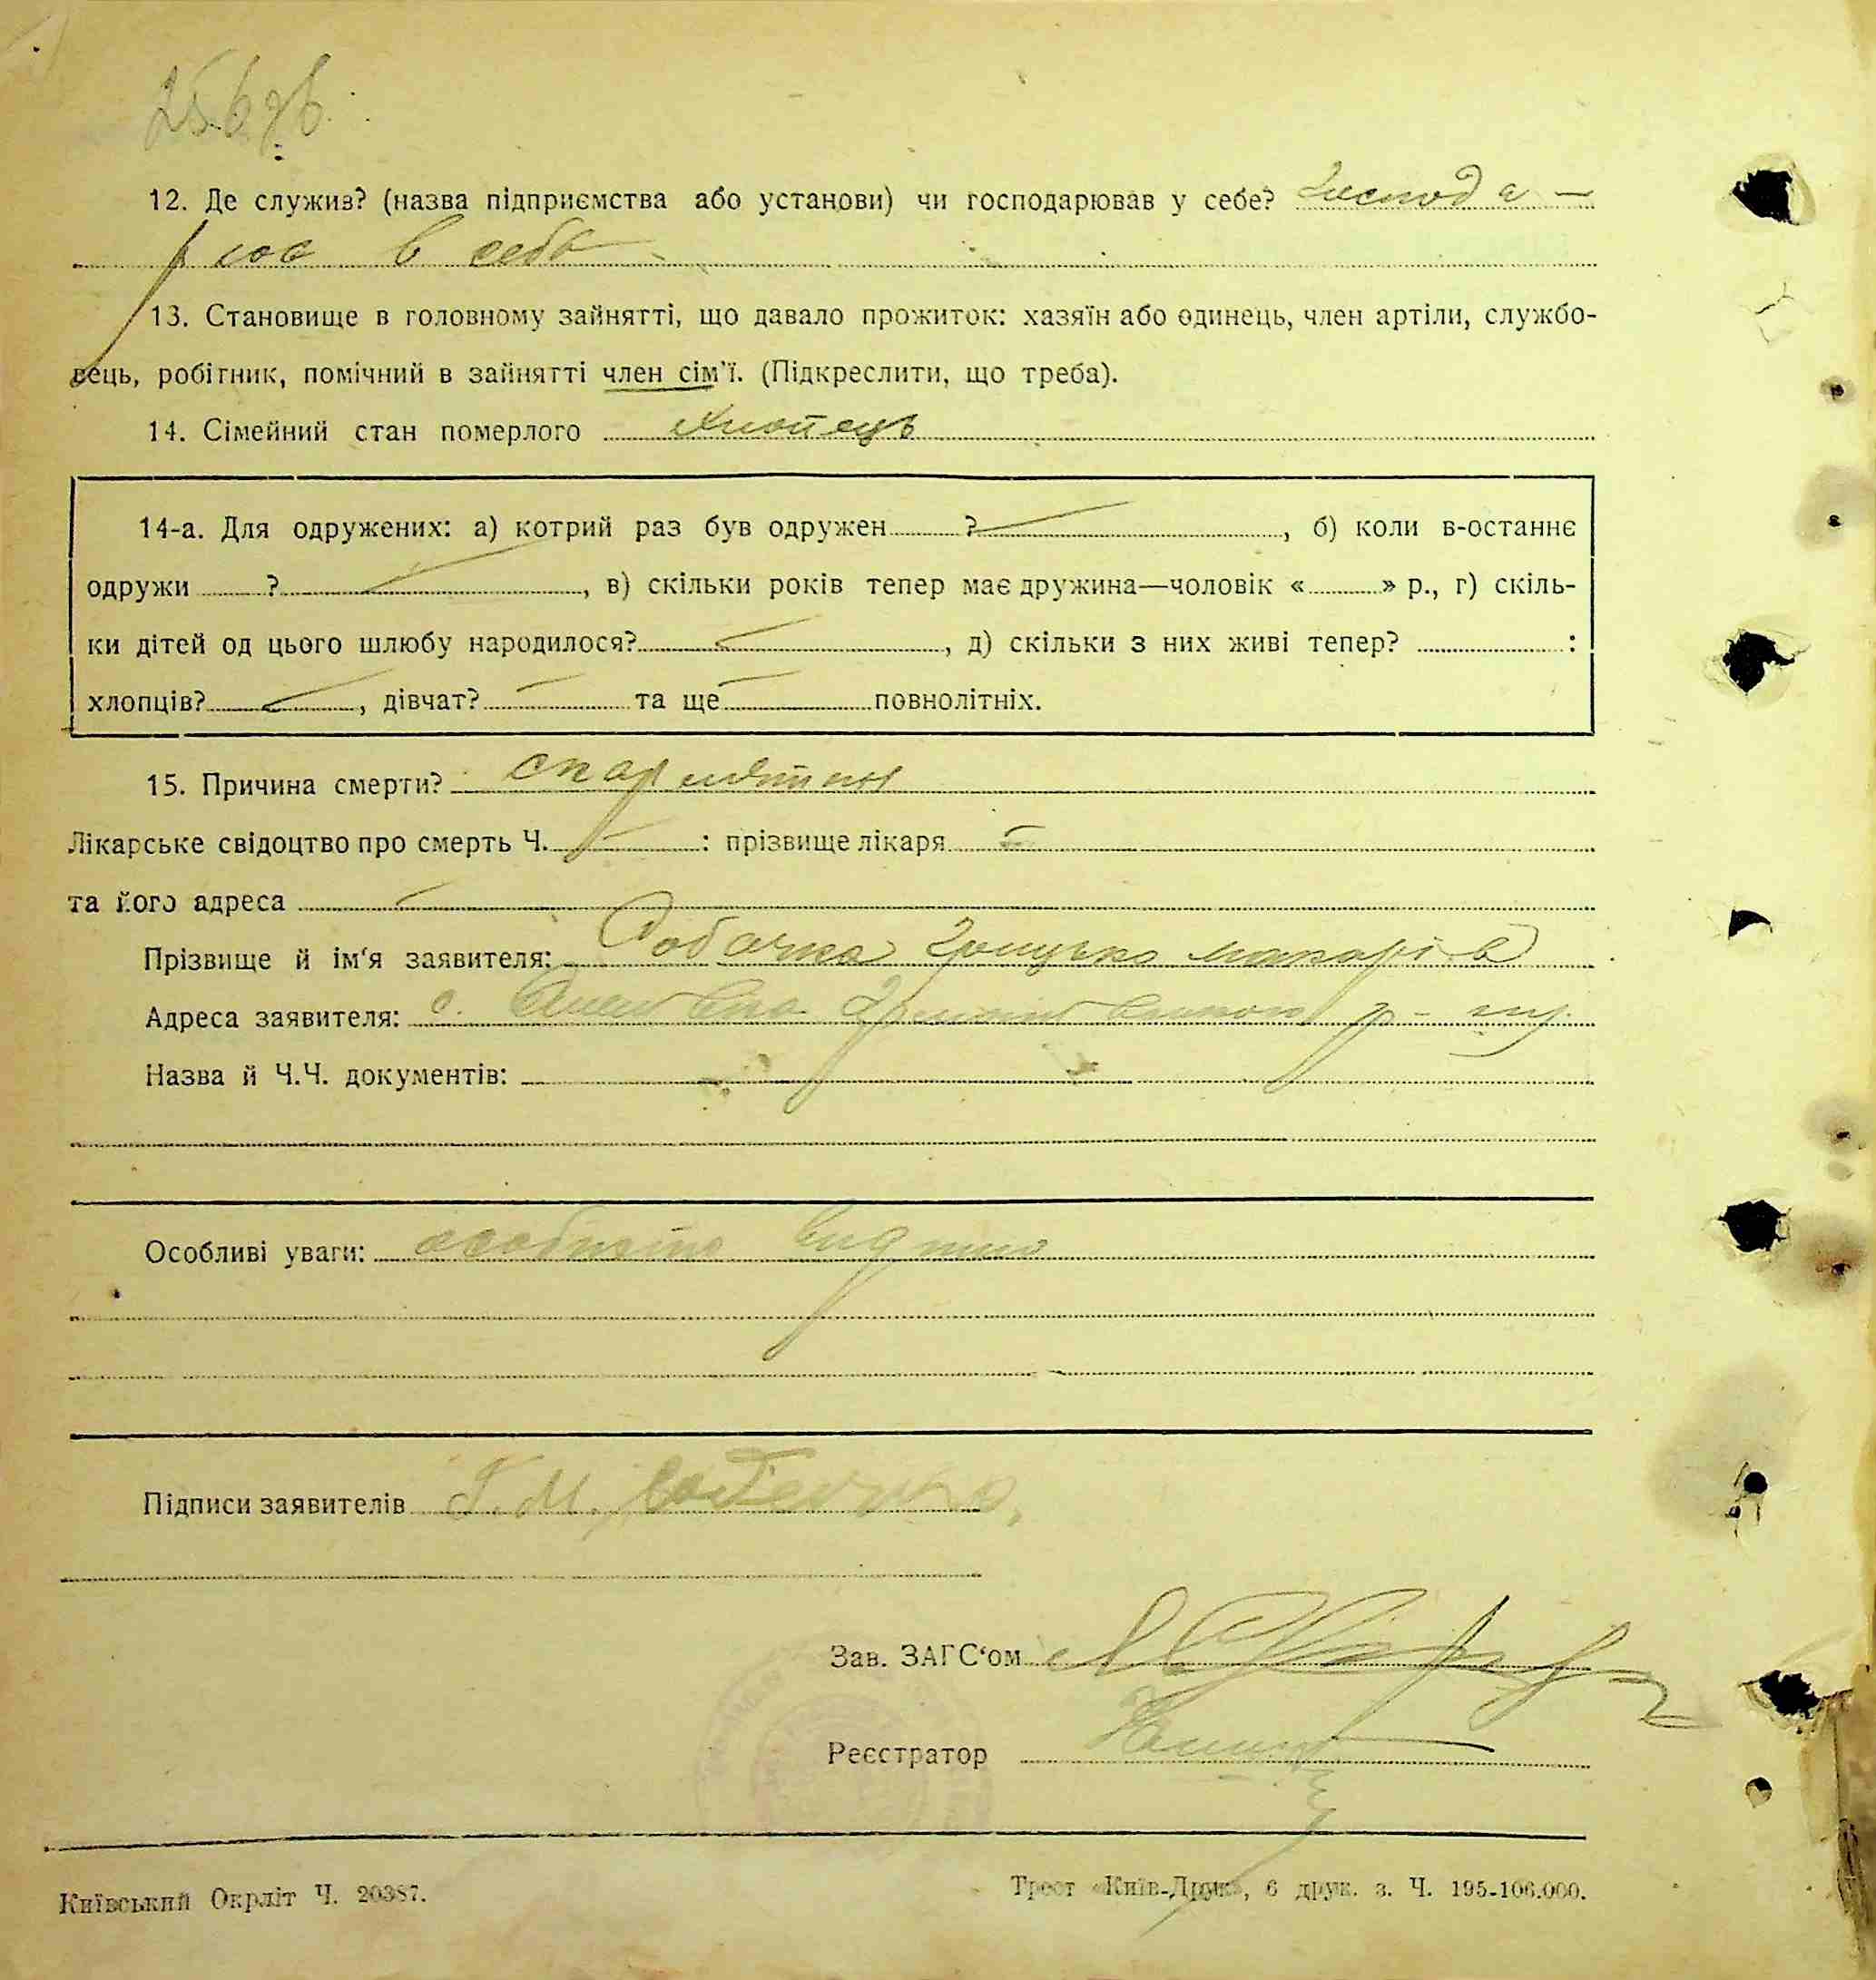 12. Де служив? (назва підприємства або установи) чи господарював у себе? господа-
рюв в себе
13. Становище в головному зайнятті, що давало прожиток: хазяїн або одинець, член артіли, службо-
вець, робітник, помічний в зайнятті член сім'ї. (Підкреслити, що треба).
14. Сімейний стан померлого хлопець
14-а. Для одружених: а) котрий раз був одружен ?, б) коли в-останнє
одружи ?, в) скільки років тепер має дружина—чоловік « » р., г) скіль-
ки дітей од цього шлюбу народилося?, д) скільки з них живі тепер? :
хлопців?, дівчат? та ще повнолітніх.
15. Причина смерти? скарлятина
Лікарське свідоцтво про смерть Ч. : прізвище лікаря
та його адреса
Прізвище й ім'я заявителя: Грицько Макарів
Адреса заявителя: с. р-ну
Назва й Ч.Ч. документів:
Особливі уваги: особисто
Підписи заявителів Г. М.
Зав. ЗАГС'ом
Реєстратор
Київський Окрліт Ч. 20387.
Трест «Київ-Друк», 6 друк. з. Ч. 195-106.000.